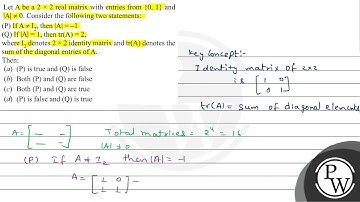 Let A be a 2 × 2 real matrix with entries from {0, 1} and
|A| ≠ 0. Consider the following two statements:
(P) If A ≠ I₂, then |A| = –1
(Q) If |A| = 1, then tr(A) = 2,
where I₂ denotes 2 × 2 identity matrix and tr(A) denotes the
sum of the diagonal entries of A.
Then:
(a) (P) is true and (Q) is false
(b) Both (P) and (Q) are false
(c) Both (P) and (Q) are true
(d) (P) is false and (Q) is true
Key concept:-
Identity matrix of 2×2
is [1 0
0 1]
tr(A) = sum of diagonal elements
A = [— —
— —]
Total matrices = 2⁴ = 16
|A| ≠ 0
(P) if A ≠ I₂ then |A| = -1
A = [1 0
1 1] -
P
W